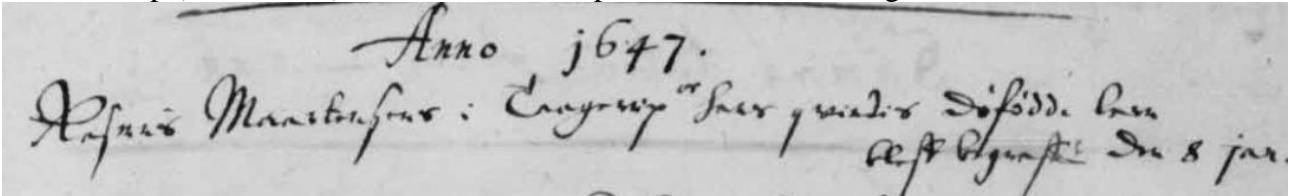 Anno 1647.
Maartensens i Taagerup oc hans qvindis døfödde barn
bleff begraffvet den 8 jan.